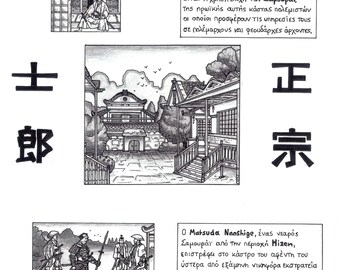 της ηρωϊκής αυτής κάστας πολεμιστών
οι οποίοι προσφέρουν τις υπηρεσίες τους
σε πολέμαρχους και φεουδάρχες άρχοντες.
正宗
士郎
Ο Matsuda Naoshige, ένας νεαρός
Σαμουράι από την περιοχή Hizen,
επιστρέφει στο κάστρο του αφέντη του
ύστερα από εξάμηνη νικηφόρα εκστρατεία